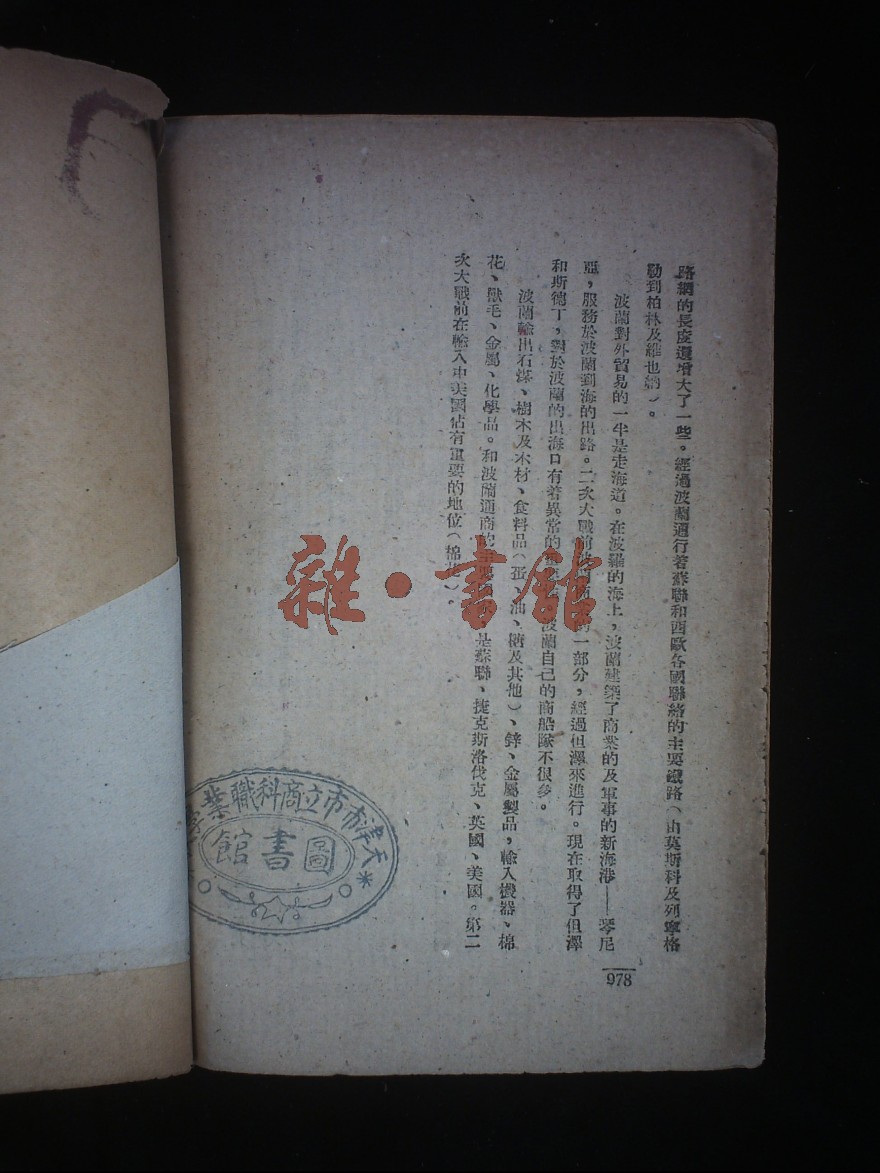 路網的長度還增大了一些。經過波蘭通行着蘇聯和西歐各國聯絡的主要鐵路、由莫斯科及列寧格
勒到柏林及維也納）。
波蘭對外貿易的一半是走海道。在波羅的海上，波蘭建築了商業的及軍事的新海港——琴尼
亞，服務於波蘭到海的出路。二次大戰前 一部分，經過但澤來進行。現在取得了但澤
和斯德丁，對於波蘭的出海口有着異常的 波蘭自己的商船隊不很多。
波蘭輸出石煤、樹木及木材、食料品（蛋、油、糖及其他）、鋅、金屬製品，輸入機器、棉
花、獸毛、金屬、化學品。和波蘭通商的 是蘇聯、捷克斯洛伐克、英國、美國。第二
次大戰前在輸入中美國佔有重要的地位（棉花）。
978
雜·書館
天津市市立商科職業學
圖書館